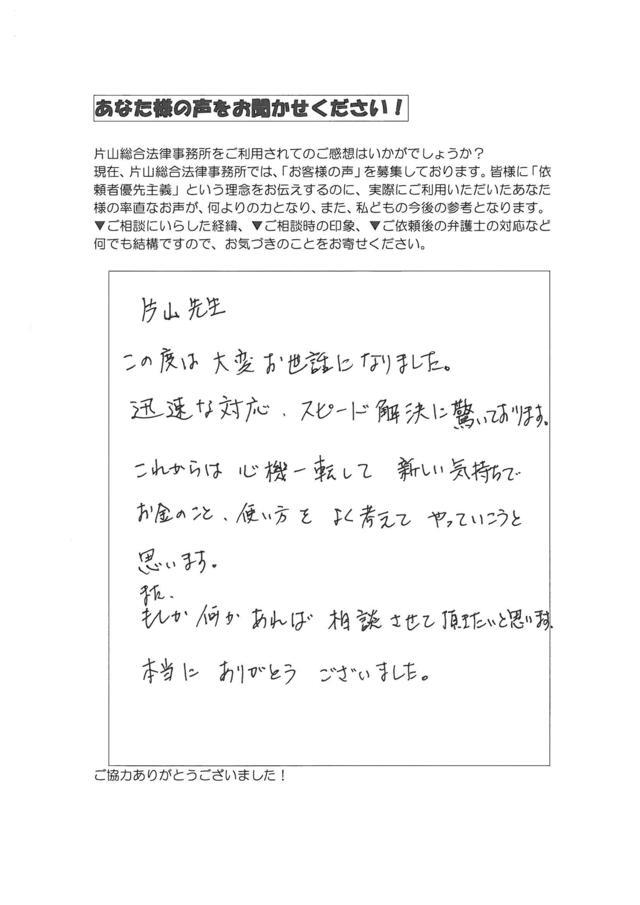 あなた様の声をお聞かせください！
片山総合法律事務所をご利用されてのご感想はいかがでしょうか？
現在、片山総合法律事務所では、「お客様の声」を募集しております。皆様に「依
頼者優先主義」という理念をお伝えするのに、実際にご利用いただいたあなた
様の率直なお声が、何よりの力となり、また、私どもの今後の参考となります。
▼ご相談にいらした経緯、▼ご相談時の印象、▼ご依頼後の弁護士の対応など
何でも結構ですので、お気づきのことをお寄せください。
片山先生
この度は 大変お世話になりました。
迅速な対応、スピード解決に驚いております。
これからは 心機一転して 新しい気持ちで
お金のこと、使い方を よく考えて やっていこうと
思います。
また、
もしか何か あれば 相談させて頂きたいと思います。
本当に ありがとう ございました。
ご協力ありがとうございました！